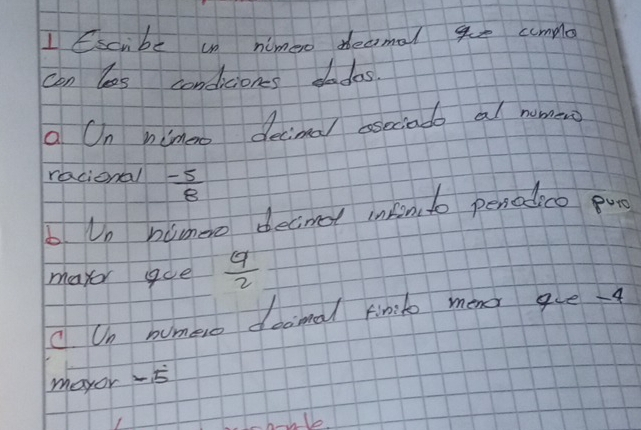 1 Escribe un número decimal que cumpla
con las condiciones dadas.
a Un número decimal asociado al número
racional -5/8
b. Un número decimal infinito periodico puro
mayor que 9/2
c Un numero decimal finito menor que -4
mayor -5